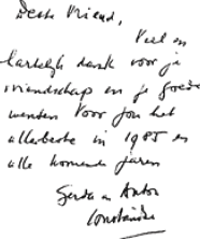 Beste Vriend,
Veel en
hartelijk dank voor je
vriendschap en je goede
wensen Voor jou het
allerbeste in 1985 en
alle komende jaren
Gerda en Anton
Constandse